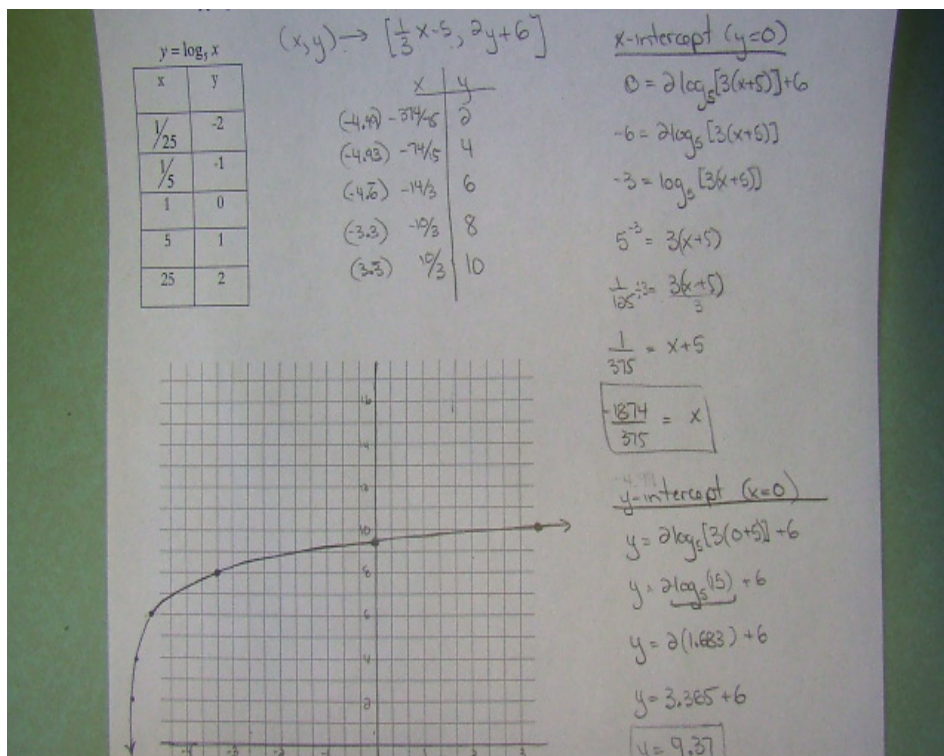 (x,y) → [1/3 x-5, 2y+6]
y = log₅ x
x y
1/25 -2
1/5 -1
1 0
5 1
25 2
x y
(-4.99) -374/75 2
(-4.93) -74/15 4
(-4.6̄) -14/3 6
(-3.3̄) -10/3 8
(3.3̄) 10/3 10
x-intercept (y=0)
0 = 2log₅[3(x+5)]+6
-6 = 2log₅[3(x+5)]
-3 = log₅[3(x+5)]
5⁻³ = 3(x+5)
1/125 ÷3 = 3(x+5)/3
1/375 = x+5
-1874/375 = x
-4.99
y-intercept (x=0)
y = 2log₅[3(0+5)] +6
y = 2log₅(15) +6
y = 2(1.683) +6
y = 3.365 +6
y = 9.37
16
14
12
10
8
6
4
2
-4 -3 -2 -1 1 2 3